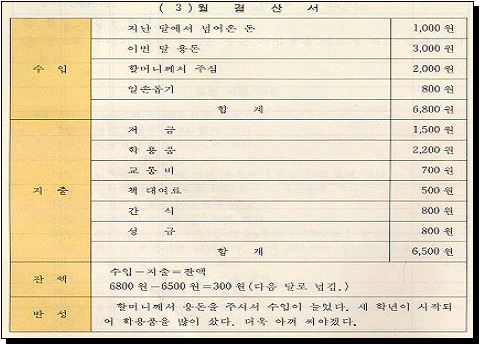 ( 3 )월 결 산 서
수 입
지난 달에서 넘어온 돈 1,000 원
이번 달 용돈 3,000 원
할머니께서 주심 2,000 원
일손돕기 800 원
합 계 6,800 원
지 출
저 금 1,500 원
학 용 품 2,200 원
교 통 비 700 원
책 대여료 500 원
간 식 800 원
성 금 800 원
합 계 6,500 원
잔 액
수입－지출＝잔액
6800 원－6500 원＝300 원(다음 달로 넘김.)
반 성
할머니께서 용돈을 주셔서 수입이 늘었다. 새 학년이 시작되
어 학용품을 많이 샀다. 더욱 아껴 써야겠다.